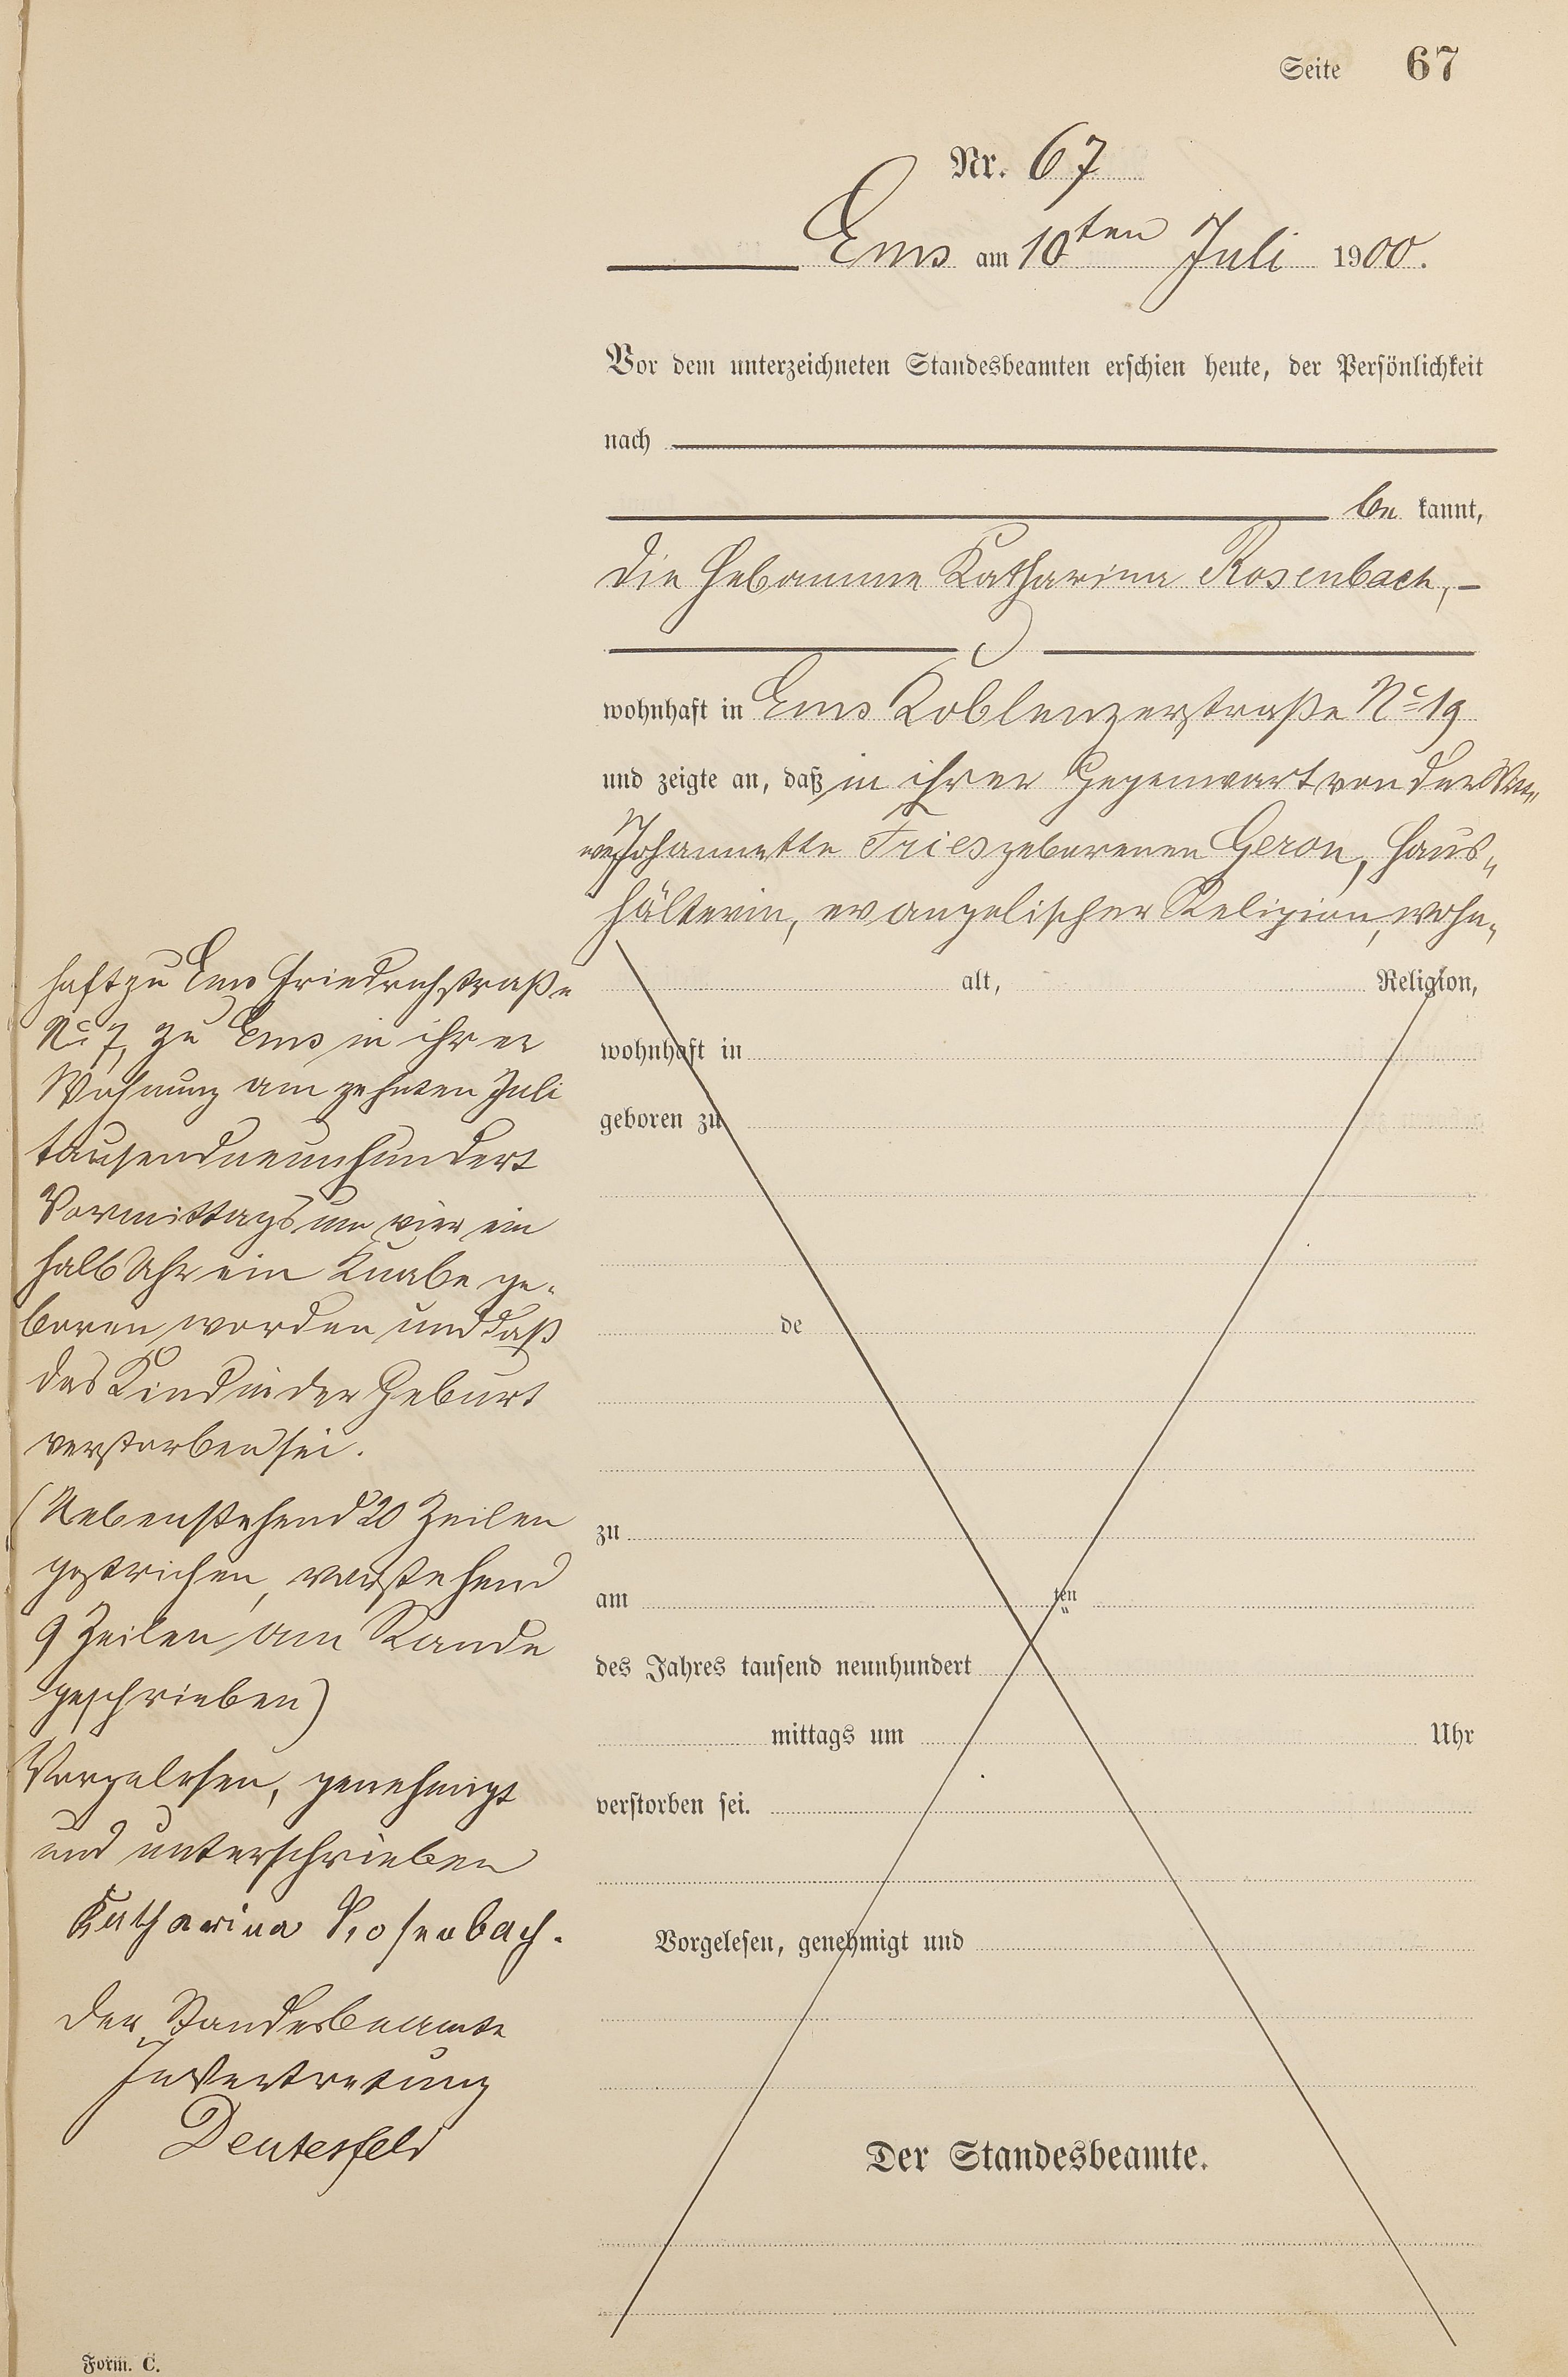 Seite 67
Nr. 67
Ems am 10ten Juli 1900.
Vor dem unterzeichneten Standesbeamten erschien heute, der Persönlichkeit
nach
be kannt,
die Hebamme Katharina Rosenbach,
wohnhaft in Ems Koblenzerstraße No 19
und zeigte an, daß in ihrer Gegenwart von der Wit„
we Johannette Fries geborenen Geron, Haus„
hälterin, evangelischer Religion, wohn„
haft zu Ems Friedrichstraße
No 7, zu Ems in ihrer
Wohnung am zehnten Juli
tausendneunhundert
Vormittags um vier ein
halb Uhr ein Knabe ge„
boren worden und daß
das Kind in der Geburt
verstorben sei.
(Nebenstehend 20 Zeilen
gestrichen, vorstehend
9 Zeilen am Rande
geschrieben)
Vorgelesen, genehmigt
und unterschrieben
Katharina Rosenbach.
Der Standesbeamte
In Vertretung
Deutesfeld
alt, Religion,
wohnhaft in
geboren zu
de
zu
am ten
des Jahres tausend neunhundert
mittags um Uhr
verstorben sei.
Vorgelesen, genehmigt und
Der Standesbeamte.
Form. C.